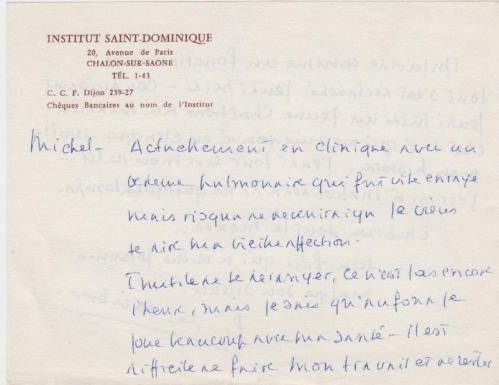 INSTITUT SAINT-DOMINIQUE
20, Avenue de Paris
CHALON-SUR-SAONE
TÉL. 1-43
C. C. P. Dijon 239-27
Chèques Bancaires au nom de l'Institut
Michel - Actuellement en clinique avec un
œdème pulmonaire qui fut vite enrayé
mais risqua de devenir aigu je viens
te dire ma vieille affection.
Inutile de te déranger, ce n'est pas encore
l'heure, mais je sais qu'au fond je
joue beaucoup avec ma santé - il est
difficile de faire mon travail et de rester